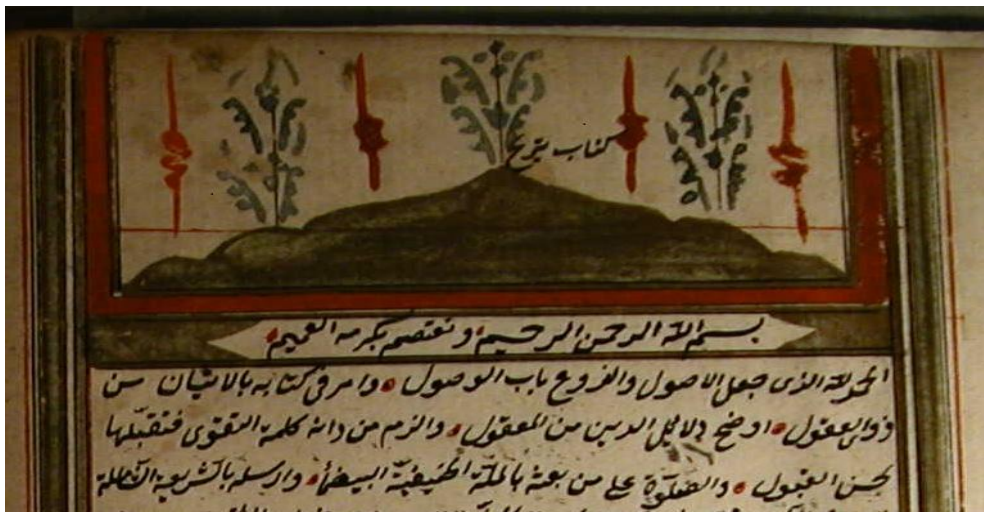 كتاب
بسم الله الرحمن الرحيم ونعتصم بكرمه العميم
الحمد لله الذى جعل الاصول والفروع باب الوصول وامر فى كتابه بالاتيان من
ذوى العقول اوضح دلائل الدين من المعقول والزم من دانه كلمة التقوى فتقبّلها
بحسن القبول والصلوة على من بعثه بالملة الحنيفيّة البيضاء وارسله بالشريعة الكاملة